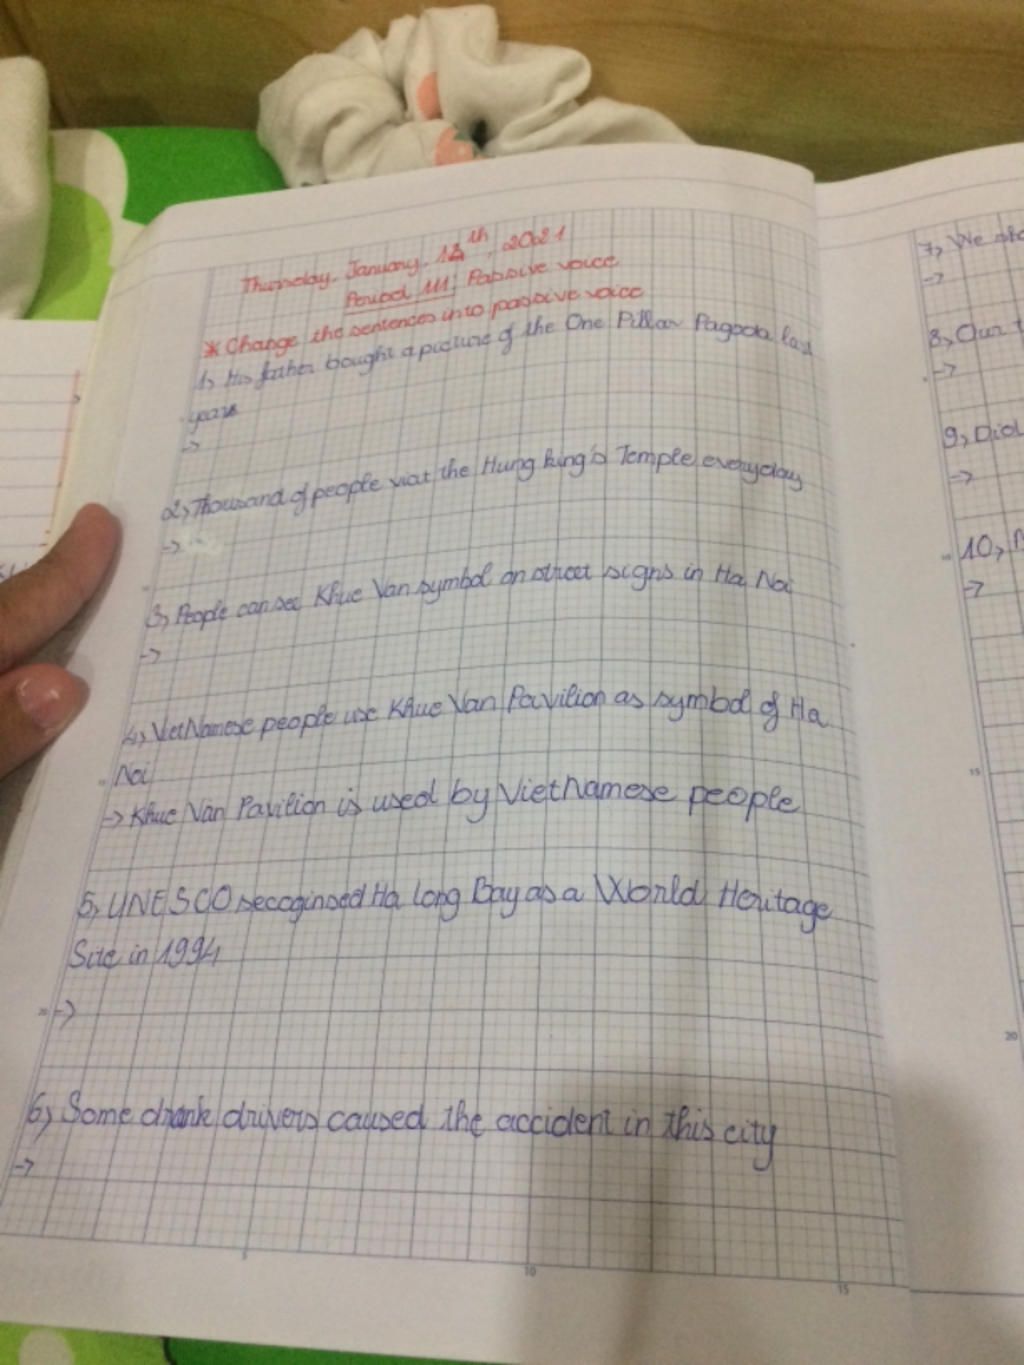 Thursday, January, 14th, 2021
Period 111: Passive voice
* Change the sentences into passive voice
1, His father bought a picture of the One Pillar Pagoda last
years
->
2, Thousand of people visit the Hung king's Temple everyday
->
3, People can see Khue Van symbol on street signs in Ha Noi
->
4, VietNamese people use Khue Van Pavilion as symbol of Ha
Noi
-> Khue Van Pavilion is used by VietNamese people
5, UNESCO recoginsed Ha long Bay as a World Heritage
Site in 1994
20 ->
6, Some drunk drivers caused the accident in this city
->
5 10 15
7, We
->
8, Our
->
9, Did
->
10,
->
15
20